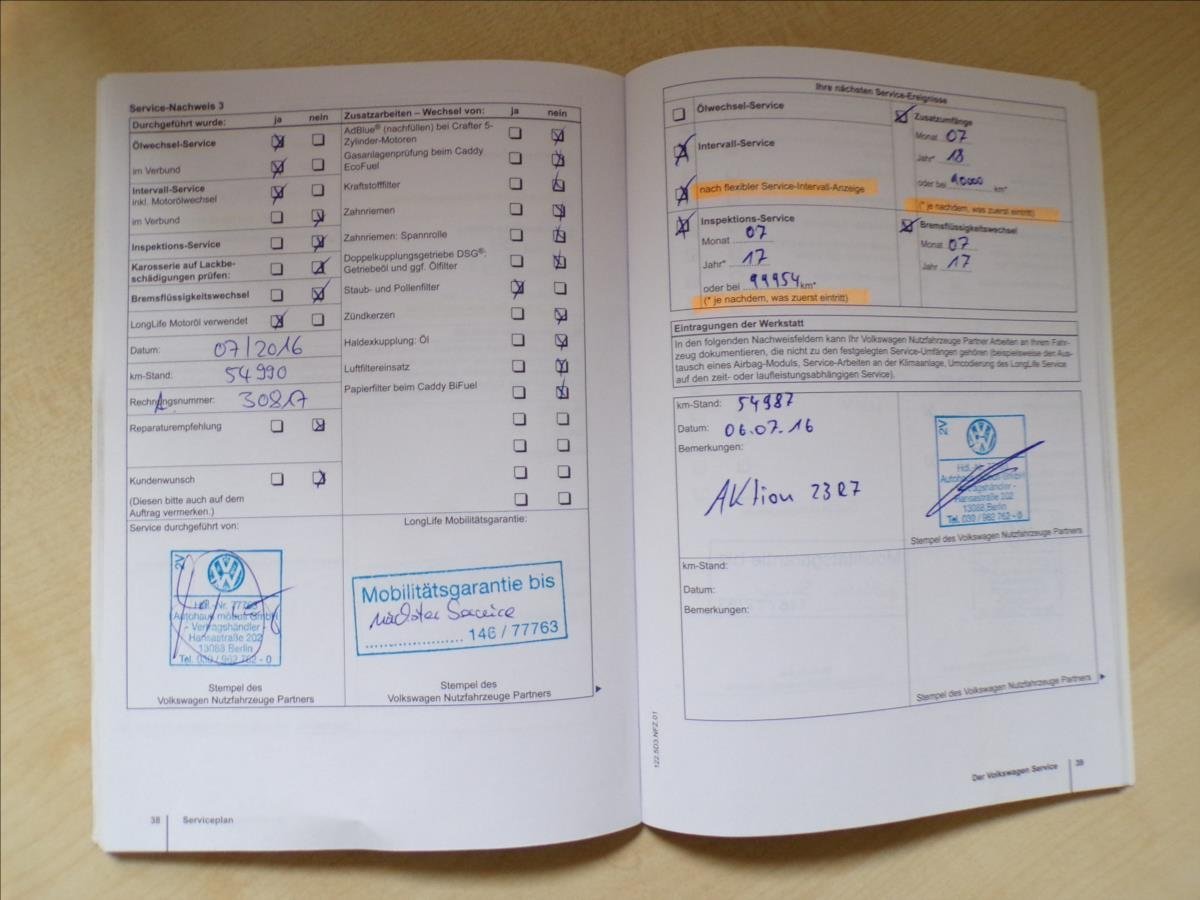 Service-Nachweis 3
Durchgeführt wurde: ja nein
Ölwechsel-Service
im Verbund
Intervall-Service
inkl. Motorölwechsel
im Verbund
Inspektions-Service
Karosserie auf Lackbe-
schädigungen prüfen:
Bremsflüssigkeitswechsel
LongLife Motoröl verwendet
Datum: 07/2016
km-Stand: 54990
Rechnungsnummer: 30817
Reparaturempfehlung
Kundenwunsch
(Diesen bitte auch auf dem
Auftrag vermerken.)
Service durchgeführt von:
2V
Hdl.-Nr. 77763
Autohaus möbus GmbH
- Vertragshändler -
Hansastraße 202
13088 Berlin
Tel. 030 / 962 762 - 0
Stempel des
Volkswagen Nutzfahrzeuge Partners
Zusatzarbeiten – Wechsel von: ja nein
AdBlue® (nachfüllen) bei Crafter 5-
Zylinder-Motoren
Gasanlagenprüfung beim Caddy
EcoFuel
Kraftstofffilter
Zahnriemen
Zahnriemen: Spannrolle
Doppelkupplungsgetriebe DSG®:
Getriebeöl und ggf. Ölfilter
Staub- und Pollenfilter
Zündkerzen
Haldexkupplung: Öl
Luftfiltereinsatz
Papierfilter beim Caddy BiFuel
LongLife Mobilitätsgarantie:
Mobilitätsgarantie bis
nächster Service
146 / 77763
Stempel des
Volkswagen Nutzfahrzeuge Partners
38 Serviceplan
Ihre nächsten Service-Ereignisse
Ölwechsel-Service
Intervall-Service
nach flexibler Service-Intervall-Anzeige
Inspektions-Service
Monat 07
Jahr* 17
oder bei 99954 km*
(* je nachdem, was zuerst eintritt)
Zusatzumfänge
Monat 07
Jahr* 18
oder bei 90000 km*
(* je nachdem, was zuerst eintritt)
Bremsflüssigkeitswechsel
Monat 07
Jahr 17
Eintragungen der Werkstatt
In den folgenden Nachweisfeldern kann Ihr Volkswagen Nutzfahrzeuge Partner Arbeiten an Ihrem Fahr-
zeug dokumentieren, die nicht zu den festgelegten Service-Umfängen gehören (beispielsweise den Aus-
tausch eines Airbag-Moduls, Service-Arbeiten an der Klimaanlage, Umcodierung des LongLife Service
auf den zeit- oder laufleistungsabhängigen Service).
km-Stand: 54987
Datum: 06.07.16
Bemerkungen:
Aktion 23R7
2V
Hdl.-Nr.
Autohaus möbus GmbH
- Vertragshändler -
Hansastraße 202
13088 Berlin
Tel. 030 / 962 762 - 0
Stempel des Volkswagen Nutzfahrzeuge Partners
km-Stand:
Datum:
Bemerkungen:
Stempel des Volkswagen Nutzfahrzeuge Partners
122.5D3.NFZ.01
Der Volkswagen Service 39